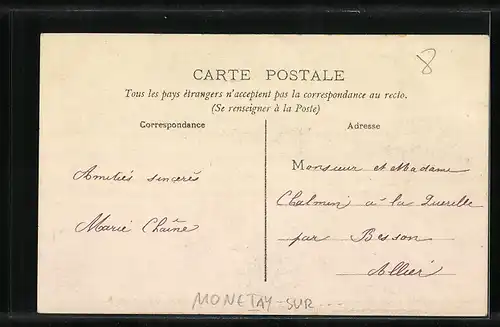 8
CARTE POSTALE
Tous les pays étrangers n'acceptent pas la correspondance au recto.
(Se renseigner à la Poste)
Correspondance
Adresse
Amitiés sincères
Marie Chaîne
Monsieur et Madame
Chalmin à la Querelle
par Besson
Allier
MONETAY-SUR...